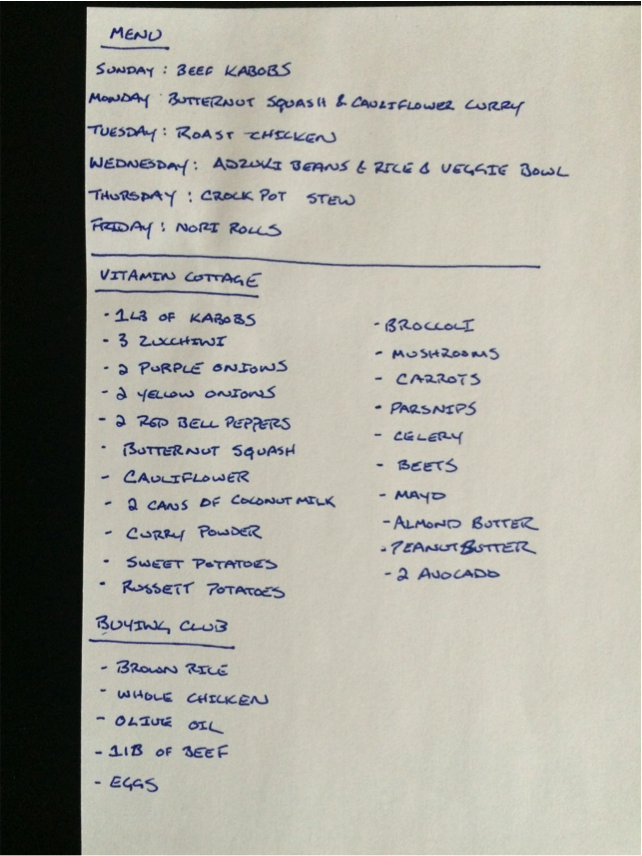 MENU
SUNDAY: BEEF KABOBS
MONDAY BUTTERNUT SQUASH & CAULIFLOWER CURRY
TUESDAY: ROAST CHICKEN
WEDNESDAY: ADZUKI BEANS & RICE & VEGGIE BOWL
THURSDAY: CROCK POT STEW
FRIDAY: NORI ROLLS
VITAMIN COTTAGE
- 1LB OF KABOBS
- 3 ZUCCHINI
- 2 PURPLE ONIONS
- 2 YELLOW ONIONS
- 2 RED BELL PEPPERS
- BUTTERNUT SQUASH
- CAULIFLOWER
- 2 CANS OF COCONUT MILK
- CURRY POWDER
- SWEET POTATOES
- RUSSETT POTATOES
- BROCCOLI
- MUSHROOMS
- CARROTS
- PARSNIPS
- CELERY
- BEETS
- MAYO
- ALMOND BUTTER
- PEANUT BUTTER
- 2 AVOCADO
BUYING CLUB
- BROWN RICE
- WHOLE CHICKEN
- OLIVE OIL
- 1LB OF BEEF
- EGGS